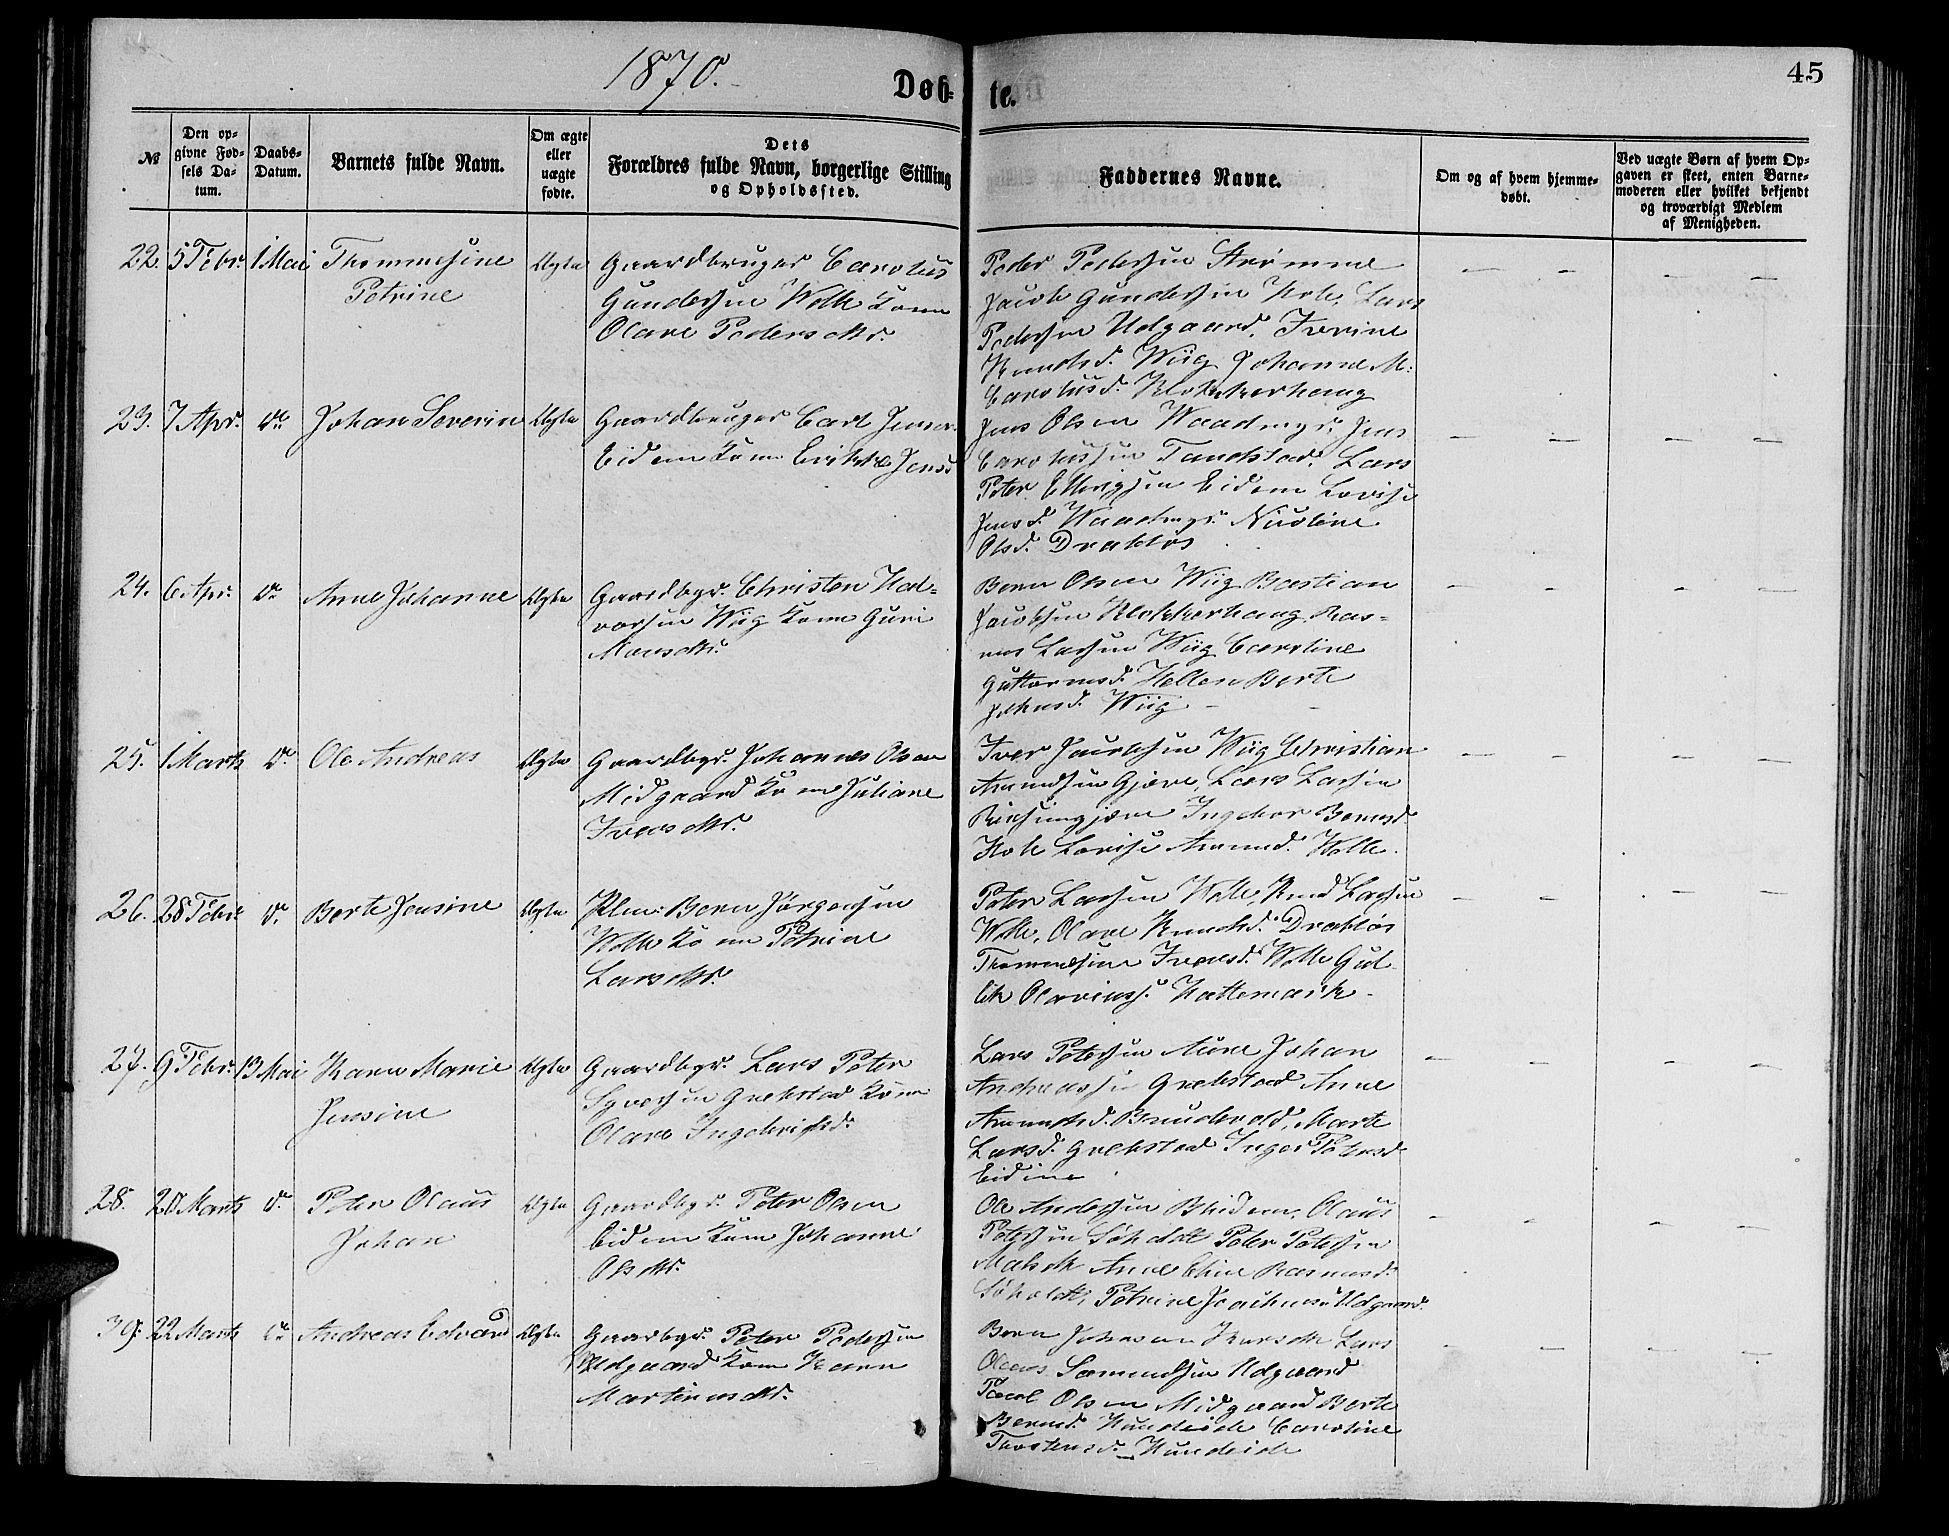 1870.
Døb-
te.
45
№
Den op-
givne Fød-
sels Da-
tum.
Daabs-
Datum.
Barnets fulde Navn.
Om ægte
eller
uægte
fødte.
Dets
Forældres fulde Navn, borgerlige Stilling
og Opholdssted.
Faddernes Navne.
Om og af hvem hjemme-
døbt.
Ved uægte Børn af hvem Op-
gaven er skeet, enten Barne-
moderen eller hvilket bekjendt
og troværdigt Medlem
af Menigheden.
22. 5 Febr. 1 Mai Thommesine Ægte Gaardbruger Carolus
Petrine Gundersen Wolle Kone
Olave Pedersdtr.
Peder Pedersen Strømme
Jacob Gundersen Hole, Lars
Pedersen Udgaard, Iverine
Knudsd. Wiig Johanne M.
Carolusd. Klokkerhaug
23. 7 Apr. do Johan Severin Ægte Gaardbruger Carl Jensen
Eidem Kone Erikke Jensd
Jens Olsen Waadmyr. Jens
Carolussen Tandstad, Lars
Peter Ellingsen Eidem Lovise
Jensd. Waadmyr. Nicoline
Olsd. Drabløs
24. 6 Apr. do Anne Johanne Ægte Gaardbgr. Christen Hal-
vorsen Wiig Kone Guri
Monsdtr.
Bern Olsen Wiig Bastian
Jacobsen Klokkerhaug Ras-
mus Larsen Wiig Caroline
Guttormsd. Hellen Berte
Johnsd. Wiig
25. 1 Marts do Ole Andreas Ægte Gaardbgr. Johannes Olsen
Midgaard Kone Juliane
Iversdtr.
Iver Jacobsen Wiig Christian
Amundsen Gjære, Lars Larsen
Ingebor Berntsd.
Hole Lovise Amund. Wolle.
26. 28 Febr. do Berte Jensine Ægte Bern Jørgensen
Wolle Kone Petrine
Larsdtr.
Peter Larsen Wolle, Knud Larsen
Wolle, Olave Knudsd. Drabløs
Thommesine Iversd. Wolle Gul-
lik Olavius. Hattemark.
27. 9 Febr. 13 Mai Karen Marie Ægte Gaardbgr. Lars Peter
Jensine Syversen Grebstad Kone
Olave Ingebrigtsd.
Lars Petersen Aure Johan
Andreassen Grebstad Anne
Amundsd. Brudevold, Marte
Larsd. Grebstad Inger Petersd
Eidem
28. 20 Marts do Peter Olaus Ægte Gaardbgr. Peter Olsen
Johan Eidem Kone Johanne
Olsdtr.
Ole Andersen Olaus
Petersen Søholdt Peter Petersen
Anne Rasmusd.
Søholdt, Petrine Udgaard.
39. 22 Marts do Andreas Edvard Ægte Gaardbgr. Peter Pedersen
Udgaard Kone Karen
Martinusdtr.
Bern Johnsen Lars
Olaus Samundsen Udgaard
Olsen Midgaard Berte
Berntsd. Hundeide Caroline
Torstensd. Hundeide